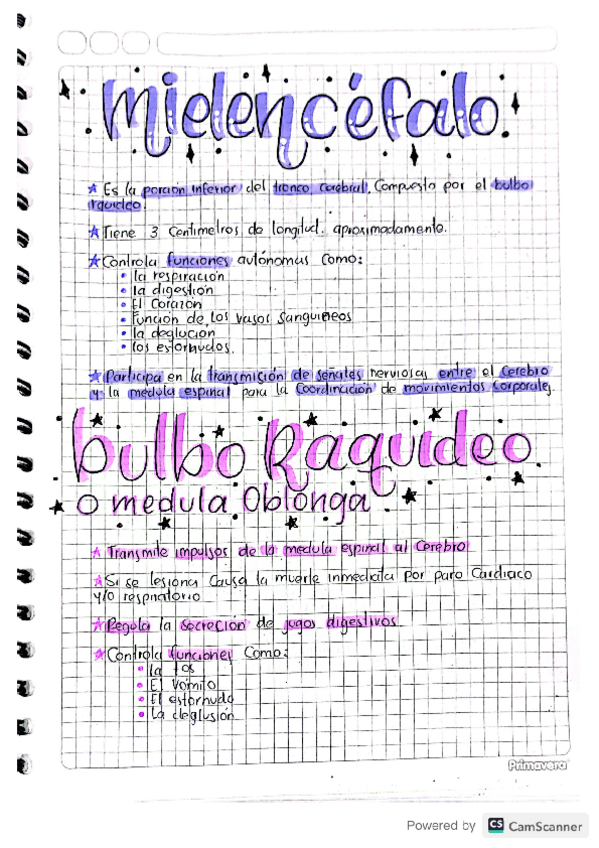 mielencéfalo
Es la porción inferior del tronco cerebral. Compuesto por el bulbo
rquideo.
Tiene 3 centimetros de longitud. aproximadamente.
Controla funciones autónomas como:
la respiración
la digestión
El Corazón
Función de los vasos sanguineos
la deglución
los estornudos.
Participa en la transmisión de señales nerviosas entre el cerebro
y la medula espinal para la Coordinación de movimientos Corporales.
bulbo Raquideo
O medula Oblonga
Transmite impulsos de la medula espinal al Cerebro
Si se lesiona Causa la muerte inmediata por paro Cardiaco
y/o respiratorio
Regula la secreción de jugos digestivos
Controla funciones Como:
la tos
El vómito
El estornudo
La deglusión
Primavera
Powered by CS CamScanner